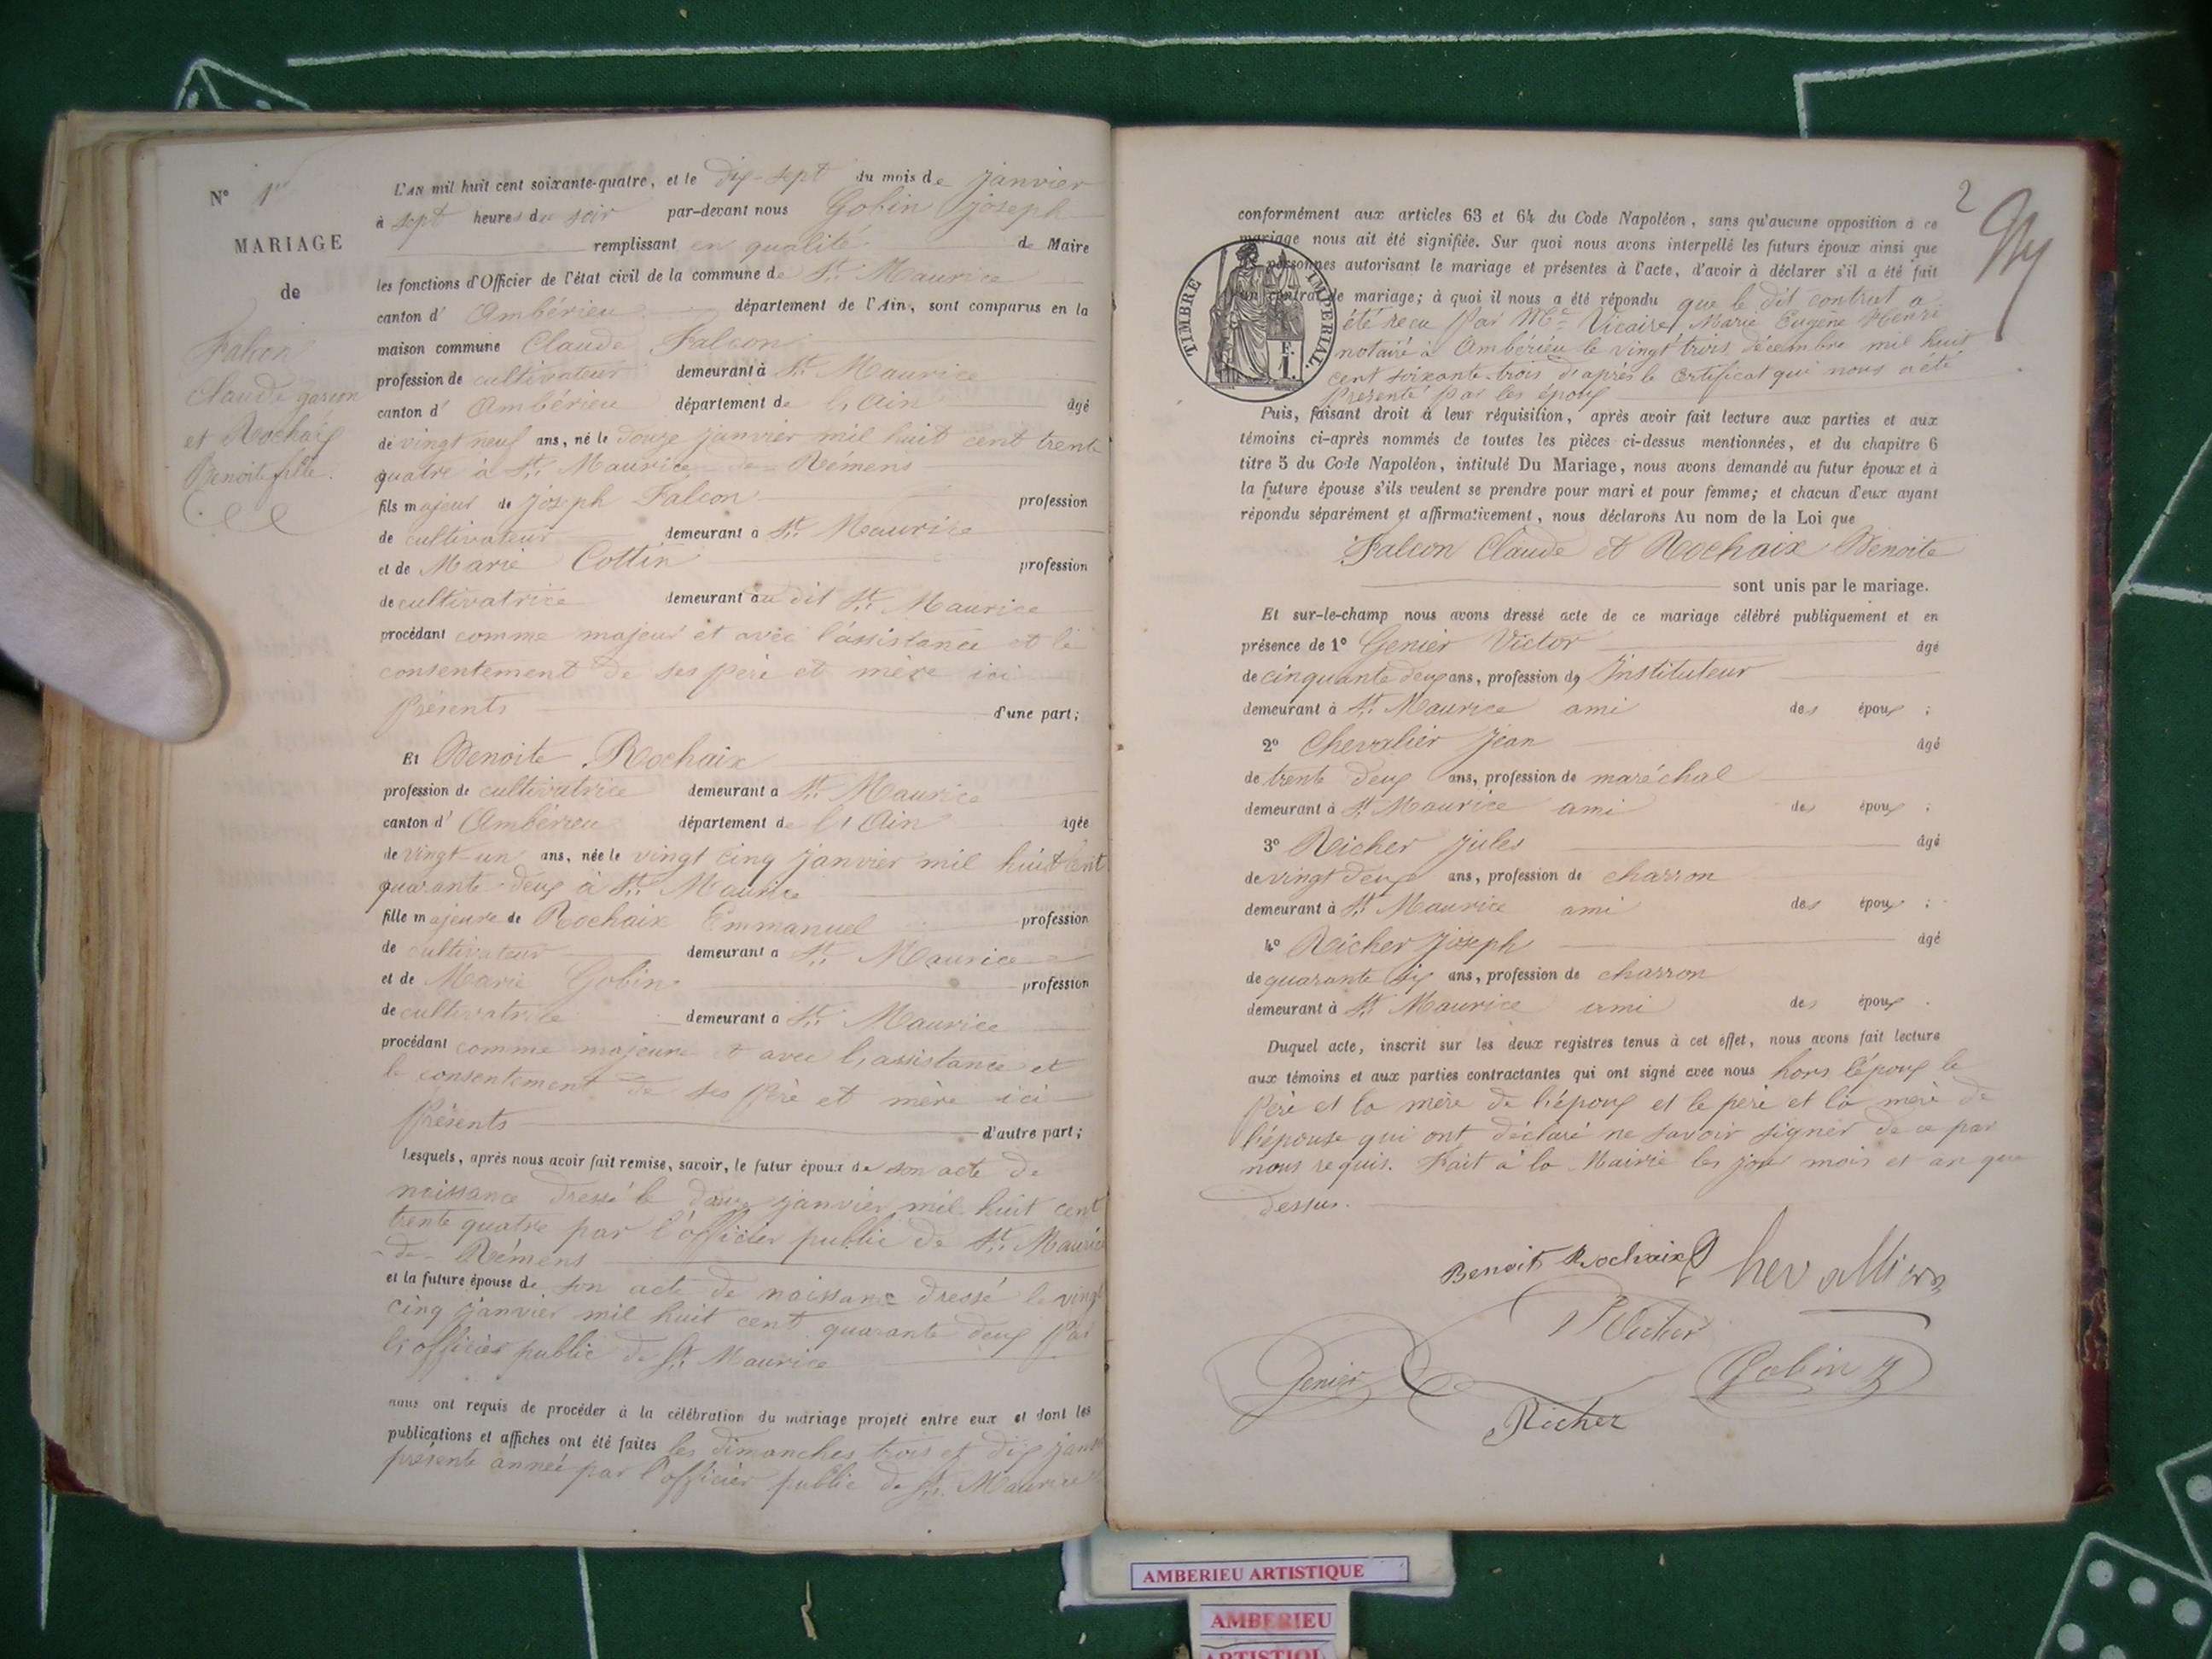 N° 1er
MARIAGE
de
Falcon
Claude garçon
et Rochaix
Benoite fille.
L'AN mil huit cent soixante-quatre, et le dix-sept du mois de janvier
à sept heures du soir par-devant nous Gobin Joseph
remplissant en qualité de Maire
les fonctions d'Officier de l'état civil de la commune de St. Maurice
canton d' Ambérieu département de l'Ain, sont comparus en la
maison commune Claude Falcon
profession de cultivateur demeurant à St. Maurice
canton d' Ambérieu département de l'Ain âgé
de vingt neuf ans, né le douze janvier mil huit cent trente
quatre à St. Maurice-de-Rémens
fils majeur de joseph Falcon profession
de cultivateur demeurant à St. Maurice
et de Marie Cottin profession
de cultivatrice demeurant au dit St. Maurice
procédant comme majeur et avec l'assistance et le
consentement de ses père et mère ici
présents d'une part;
Et Benoite Rochaix
profession de cultivatrice demeurant à St. Maurice
canton d' Ambérieu département de l'Ain âgée
de vingt-un ans, née le vingt cinq janvier mil huit cent
quarante-deux à St. Maurice
fille majeure de Rochaix Emmanuel profession
de cultivateur demeurant à St. Maurice
et de Marie Gobin profession
de cultivatrice demeurant à St. Maurice
procédant comme majeure et avec l'assistance et
le consentement de ses père et mère ici
présents d'autre part;
Lesquels, après nous avoir fait remise, savoir, le futur époux de son acte de
naissance dressé le douze janvier mil huit cent
trente quatre par l'officier public de St. Maurice
-de-Rémens
et la future épouse de son acte de naissance dressé le vingt
cinq janvier mil huit cent quarante deux par
l'officier public de St. Maurice
nous ont requis de procéder à la célébration du mariage projeté entre eux et dont les
publications et affiches ont été faites les dimanches trois et dix janvier
présente année par l'officier public de St. Maurice
2
conformément aux articles 63 et 64 du Code Napoléon, sans qu'aucune opposition à ce
mariage nous ait été signifiée. Sur quoi nous avons interpellé les futurs époux ainsi que
personnes autorisant le mariage et présentes à l'acte, d'avoir à déclarer s'il a été fait
un contrat de mariage; à quoi il nous a été répondu que le dit contrat a
été reçu par Me Vicaire Marie Eugène Henri
notaire à Ambérieu le vingt trois décembre mil huit
cent soixante-trois d'après le certificat qui nous a été
présenté par les époux
TIMBRE IMPERIAL.
Puis, faisant droit à leur réquisition, après avoir fait lecture aux parties et aux
témoins ci-après nommés de toutes les pièces ci-dessus mentionnées, et du chapitre 6
titre 5 du Code Napoléon, intitulé Du Mariage, nous avons demandé au futur époux et à
la future épouse s'ils veulent se prendre pour mari et pour femme; et chacun d'eux ayant
répondu séparément et affirmativement, nous déclarons Au nom de la Loi que
Falcon Claude et Rochaix Benoite
sont unis par le mariage.
Et sur-le-champ nous avons dressé acte de ce mariage célébré publiquement et en
présence de 1° Genier Victor âgé
de cinquante deux ans, profession d' Instituteur
demeurant à St. Maurice ami des époux ;
2° Chevalier Jean âgé
de trente deux ans, profession de maréchal
demeurant à St. Maurice ami des époux ;
3° Richer Jules âgé
de vingt deux ans, profession de charron
demeurant à St. Maurice ami des époux ;
4° Richer Joseph âgé
de quarante six ans, profession de charron
demeurant à St. Maurice ami des époux .
Duquel acte, inscrit sur les deux registres tenus à cet effet, nous avons fait lecture
aux témoins et aux parties contractantes qui ont signé avec nous hors l'époux le
père et la mère de l'époux et le père et la mère de
l'épouse qui ont déclaré ne savoir signer de ce par
nous requis. Fait à la Mairie les jour mois et an que
dessus.
Benoite Rochaix Chevallier
Richer
Genier Gobin J
Richer
AMBERIEU ARTISTIQUE
AMBERIEU
ARTISTIQUE